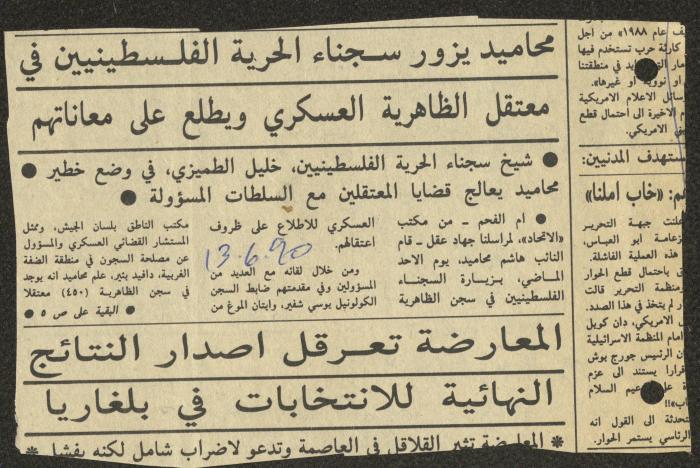 محاميد يزور سجناء الحرية الفلسطينيين في
معتقل الظاهرية العسكري ويطلع على معاناتهم
● شيخ سجناء الحرية الفلسطينيين، خليل الطميزي، في وضع خطير ●
محاميد يعالج قضايا المعتقلين مع السلطات المسؤولة ●
● ام الفحم - من مكتب
«الاتحاد»، لمراسلنا جهاد عقل - قام
النائب هاشم محاميد، يوم الاحد
الماضي، بزيارة السجناء
الفلسطينيين في سجن الظاهرية
العسكري للاطلاع على ظروف
اعتقالهم.
13.6.90
ومن خلال لقائه مع العديد من
المسؤولين وفي مقدمتهم ضابط السجن
الكولونيل يوسي شفير، وايتان الموغ من
مكتب الناطق بلسان الجيش، وممثل
المستشار القضائي العسكري والمسؤول
عن مصلحة السجون في منطقة الضفة
الغربية، دافيد بئير، علم محاميد انه يوجد
في سجن الظاهرية (٤٥٠) معتقلا
● البقية على ص ٥ ●
المعارضة تعرقل اصدار النتائج
النهائية للانتخابات في بلغاريا
* المعارضة تثير القلاقل في العاصمة وتدعو لاضراب شامل لكنه يفشل *
عام ١٩٨٨» من اجل
كارثة حرب تستخدم فيها
في منطقتنا
او نووية او غيرها».
وسائل الاعلام الاميركية
الاخيرة الى احتمال قطع
الاميركي.
تستهدف المدنيين:
«خاب املنا»
اعلنت جبهة التحرير
بزعامة ابو العباس،
هذه العملية الفاشلة.
باحتمال قطع الحوار
منظمة التحرير قالت
لم يتخذ في هذا الصدد.
الاميركي، دان كويل
امام المنظمة الاسرائيلية
ان الرئيس جورج بوش
قرارا يستند الى عزم
السلام
المتحدثة الى القول انه
الرئاسي يستمر الحوار.